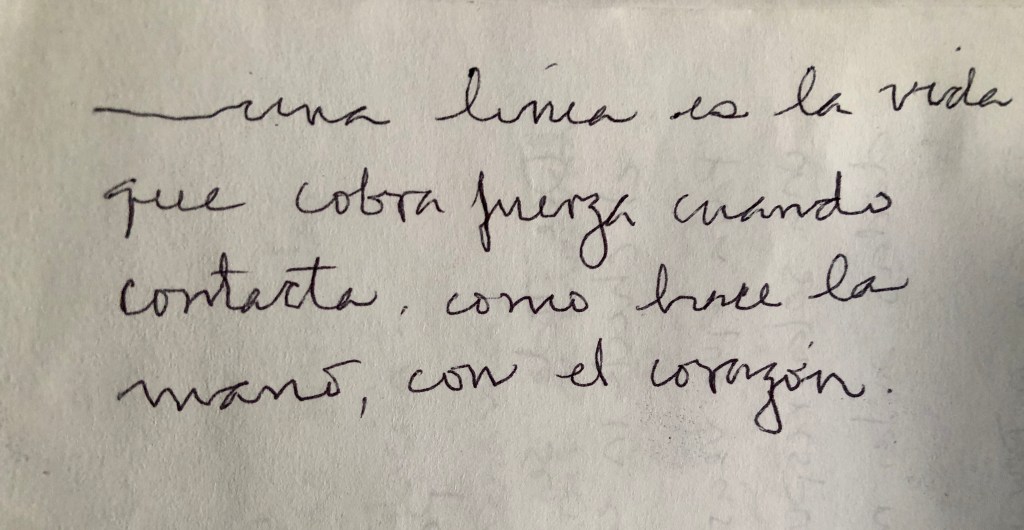 una línea es la vida
que cobra fuerza cuando
contacta, como hace la
mano, con el corazón.